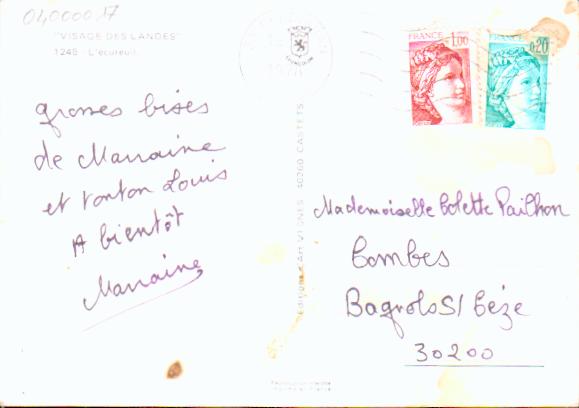 040000 17
"VISAGE DES LANDES"
1245 - L'écureuil
FRANCE
1,00
FRANCE
0,20
grosses bises
de Marraine
et tonton Louis
A bientôt
Marraine
EDITIONS D'ART VIGNES 40260 CASTETS
Mademoiselle Colette Pailhon
Combes
Bagnols S/ Cèze
30200